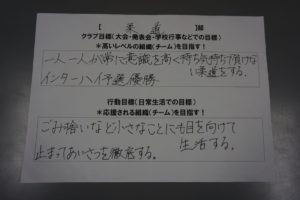 【 柔道 】部
クラブ目標(大会・発表会・学校行事などでの目標)
*高いレベルの組織(チーム)を目指す!
一人一人が常に意識を高く持ち気持ちで負けない
柔道をする。
インターハイ予選優勝
行動目標(日常生活での目標)
*応援される組織(チーム)を目指す!
ごみ拾いなど小さなことにも目を向けて
生活する。
止まってあいさつを徹底する。